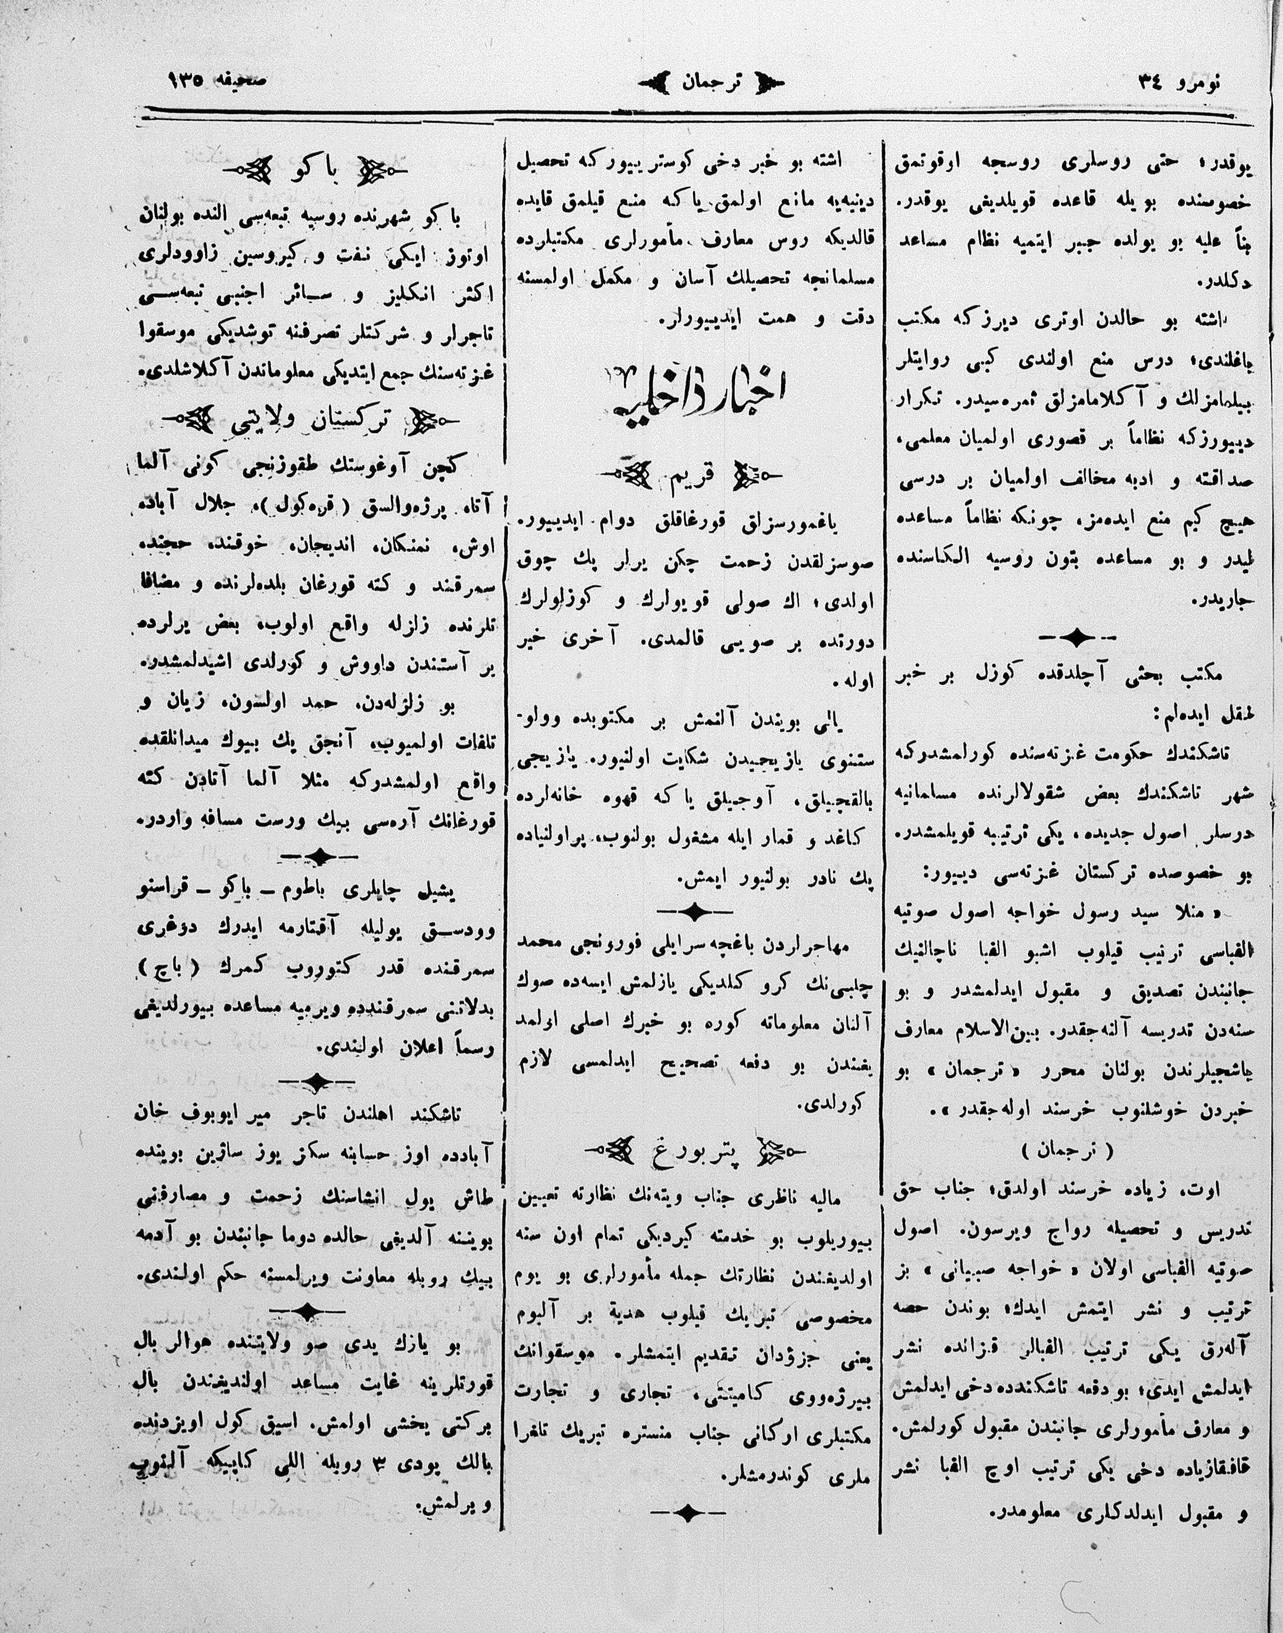 نومرو ٣٤
ترجمان
صحیفه ١٣٥
یوقدر؛ حتی روسلری روسجه اوقوتمق
خصوسنده بویله قاعده قویلدیغی یوقدر.
بناً علیه بو یولده جبر ایتمیه نظام مساعد
دکلدر.
اشته بو حالدن اوتری دیرزکه مکتب
باغلندی؛ درس منع اولندی کبی روایتلر
بیلمامزلك و آکلامامزلق ثمره‌سیدر. تکرار
دییورزکه نظاماً بر قصوری اولمیان معلمی،
صداقته و ادبه مخالف اولمیان بر درسی
هیچ کیم منع ایده‌مز، چونکه نظاماً مساعده
لیدر و بو مساعده بتون روسیه الکاسنده
جاریدر.
مکتب بحثی آچلدقده کوزل بر خبر
نقل ایده‌لم:
تاشکندك حکومت غزته‌سنده کورلمشدرکه
شهر تاشکندك بعض شقولالرنده مسلمانیه
درسلر اصول جدیده، یکی ترتیبه قویلمشدر.
بو خصوصده ترکستان غزته‌سی دییور:
« منلا سید رسول خواجه اصول صوتیه
الفباسی ترتیب قیلوب اشبو الفبا ناچالنیك
جانبندن تصدیق و مقبول ایدلمشدر و بو
سنه‌دن تدریسه آلنه‌جقدر. بین‌الاسلام معارف
باشجیلرندن بولنان محرر « ترجمان » بو
خبردن خوشلنوب خرسند اوله‌جقدر ».
( ترجمان )
اوت، زیاده خرسند اولدق؛ جناب حق
تدریس و تحصیله رواج ویرسون. اصول
صوتیه الفباسی اولان « خواجه صبیانی » بز
ترتیب و نشر ایتمش ایدك؛ بوندن حصه
آله‌رق یکی ترتیب الفبالر قزانده نشر
ایدلمش ایدی؛ بو دفعه تاشکندده دخی ایدلمش
و معارف مأمورلری جانبندن مقبول کورلمش.
قافقازیاده دخی یکی ترتیب اوچ الفبا نشر
و مقبول ایدلدکلری معلومدر.
اشته بو خبر دخی کوستریییورکه تحصیل
دینیه‌یه مانع اولمق یاکه منع قیلمق قایده
قالدیکه روس معارف مأمورلری مکتبلرده
مسلمانجه تحصیلك آسان و مکمل اولمسنه
دقت و همت ایدییورلر.
اخبار داخلیه
قریم
یاغمورسزلق قورغاقلق دوام ایدییور.
صوسزلقدن زحمت چکن یرلر پك چوق
اولدی؛ اك صولی قویولرك و کوزلولرك
دورتده بر صویی قالمدی. آخری خیر
اوله.
یالی بویندن آلنمش بر مکتوبده وولو-
ستنوی یازیجیدن شکایت اولنیور. یازیجی
بالقجیلق، آوجیلق یاکه قهوه خانه‌لرده
کاغد و قمار ایله مشغول بولنوب، پراولنیاده
پك نادر بولنیور ایمش.
مهاجراردن باغچه‌سرایلی فورونجی محمد
چلبی‌نك کرو کلدیکی یازلمش ایسه‌ده صوك
آلنان معلوماته کوره بو خبرك اصلی اولمد
یغندن بو دفعه تصحیح ایدلمسی لازم
کورلدی.
پتربورغ
مالیه ناظری جناب ویته‌نك نظارته تعیین
بیوریلوب بو خدمته کیردیکی تمام اون سنه
اولدیغندن نظارتك جمله مأمورلری بو یوم
مخصوصی تبریك قیلوب هدیة بر آلبوم
یعنی جزؤدان تقدیم ایتمشلر. موسقوانك
بیرژه‌ووی کامیتتی، تجاری و تجارت
مکتبلری ارکانی جناب منستره تبریك تلغرا
ملری کوندرمشلر.
باکو
باکو شهرنده روسیه تبعه‌سی النده بولنان
اوتوز ایکی نفت و کیروسین زاوودلری
اکثر انکلیز و سائر اجنبی تبعه‌سی
تاجرلر و شرکتلر تصرفنه توشدیکی موسقوا
غزته‌سنك جمع ایتدیکی معلوماتدن آکلاشلدی.
ترکستان ولایتی
کچن آوغوستك طقوزنجی کونی آلما
آتا، پرژه‌والسق (قره‌کول)، جلال آباده
اوش، نمنکان، اندیجان، خوقند، خجند،
سمرقند و کته قورغان بلده‌لرنده و مضافا
تلرنده زلزله واقع اولوب، بعض یرلرده
یر آستندن داووش و کورلدی اشیدلمشدر.
بو زلزله‌دن، حمد اولسون، زیان و
تلفات اولمیوب، آنجق پك بیوك میدانلقده
واقع اولمشدرکه مثلا آلما آتادن کته
قورغانك آره‌سی بیك ورست مسافه واردر.
یشیل چایلری باطوم – باکو – قراسنو
وودسق یولیله آقتارمه ایدرك دوغری
سمرقنده قدر کتوروب کمرك (باچ)
بدلاتنی سمرقندده ویرمیه مساعده بیورلدیغی
رسماً اعلان اولندی.
تاشکند اهلندن تاجر میر ایوبوف خان
آبادده اوز حسابنه سکز یوز ساژین بوینده
طاش یول انشاسنك زحمت و مصارفنی
بویننه آلدیغی حالده دوما جانبندن بو آدمه
بیك روبله معاونت ویرلمسنه حکم اولندی.
بو یازك یدی صو ولایتنده هوالر بال
قورتلرینه غایت مساعد اولندیغندن بال
برکتی یخشی اولمش. اسیق کول اویزدنده
بالك پودی ٣ روبله اللی کاپیکه آلنوب
ویرلمش.